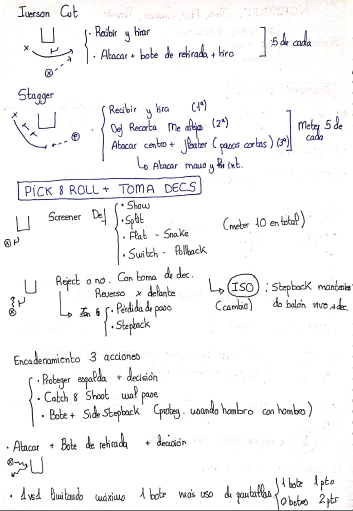 Iverson Cut
· Recibir y tirar
· Atacar + bote de retirada + tiro
5 de cada
Stagger
· Recibir y tira (1ª)
Def Recorta Me alejo (2ª)
Atacar centro + floater (pasos cortos) (3ª)
↳ Atacar mano y int.
Meter 5 de cada
PICK & ROLL + TOMA DECS
Screener Def
· Show
· Split
· Flat - Snake
· Switch - Pullback
(meter 10 en total)
Reject o no. Con toma de dec.
Reverso x delante
↳ · Pérdida de paso
· Stepback
↳ ISO : Stepback
(cambio) do balón vivo + dec.
Encadenamiento 3 acciones
· Proteger espalda + decisión
· Catch & Shoot mal pase
· Bote + Side Stepback (proteg. usando hombro con hombro)
· Atacar + Bote de retirada + decisión
· 1vs1 limitando máximo 1 bote más uso de pantallas
1 bote 1 pto
0 botes 2 ptr